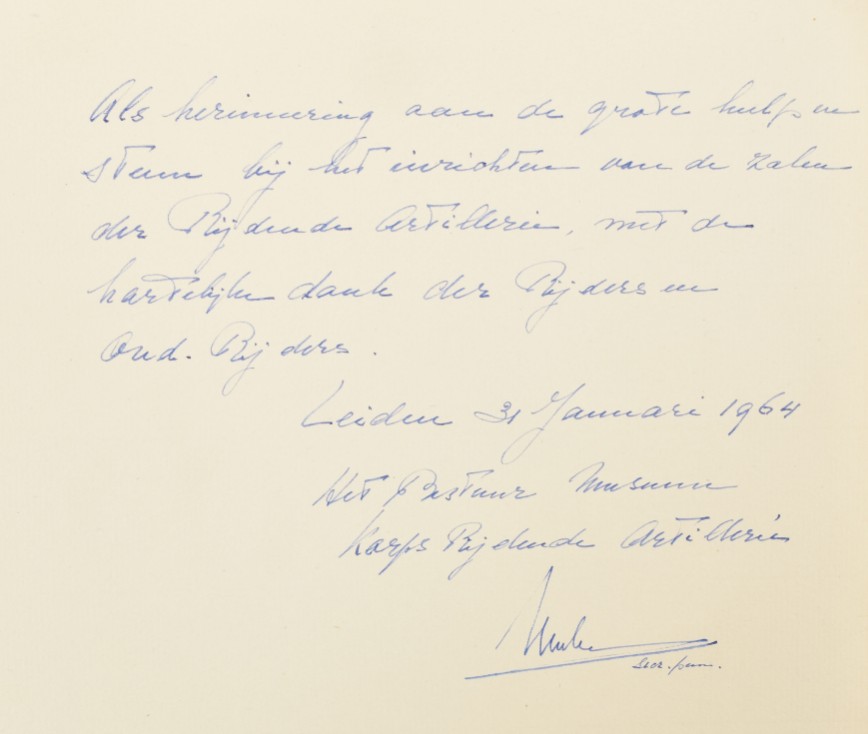 Als herinnering aan de grote hulp en
steun bij het inrichten van de zalen
der Rijdende Artillerie, met de
hartelijke dank der Rijders en
Oud-Rijders.
Leiden 31 Januari 1964
Het Bestuur Museum
Korps Rijdende Artillerie
Secr./penn.